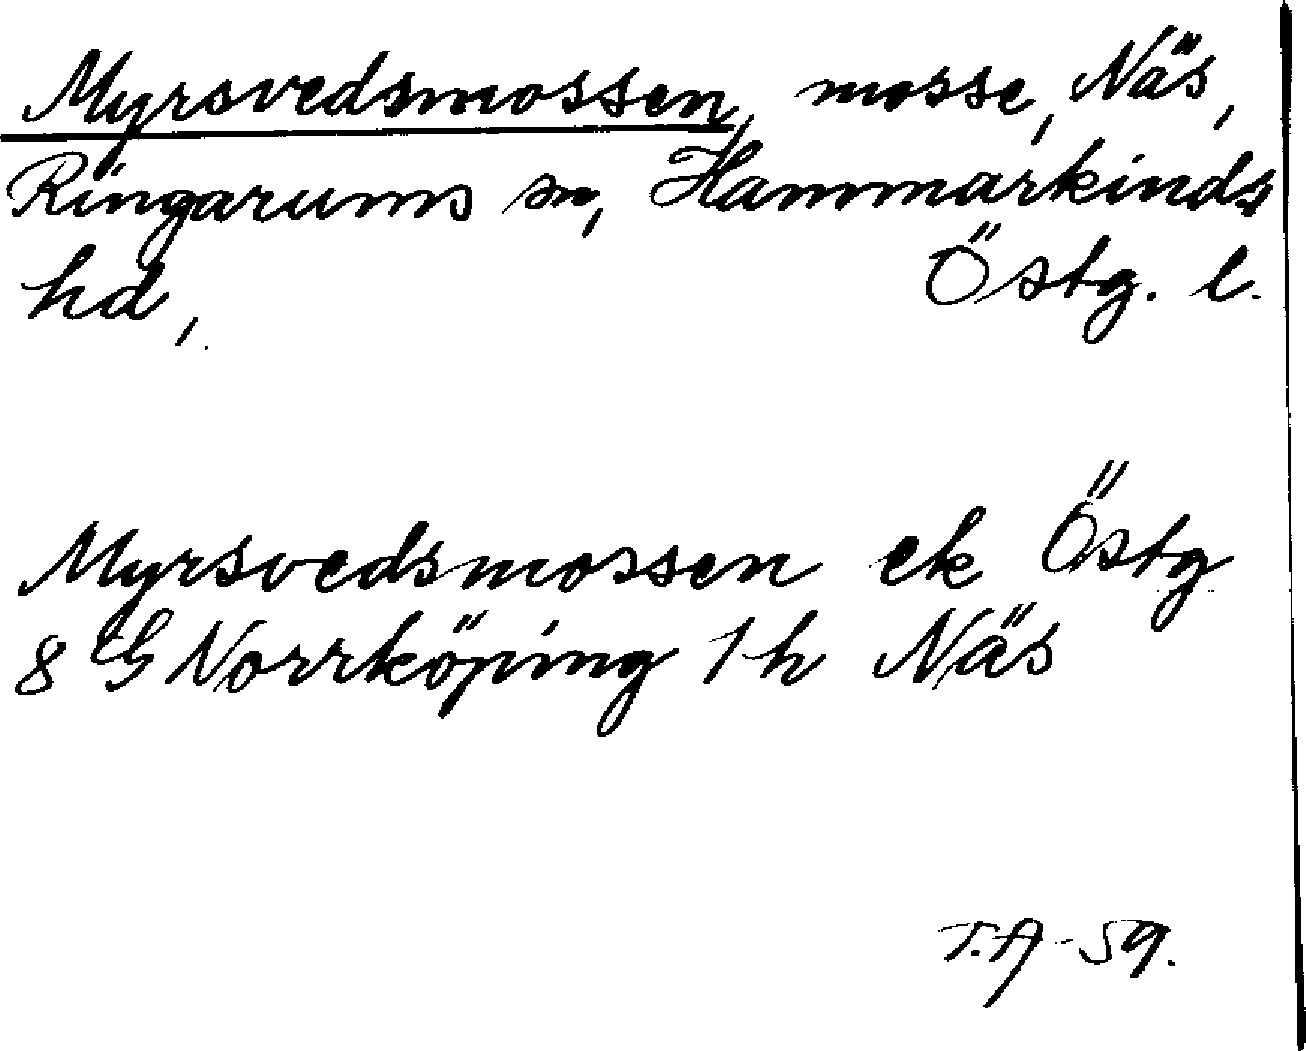 Myrsvedsmossen, mosse, Näs,
Ringarums sn, Hammarkinds
hd, Östg. l.
Myrsvedsmossen ek Östg
8 G Norrköping 1 h Näs
T.A -59.